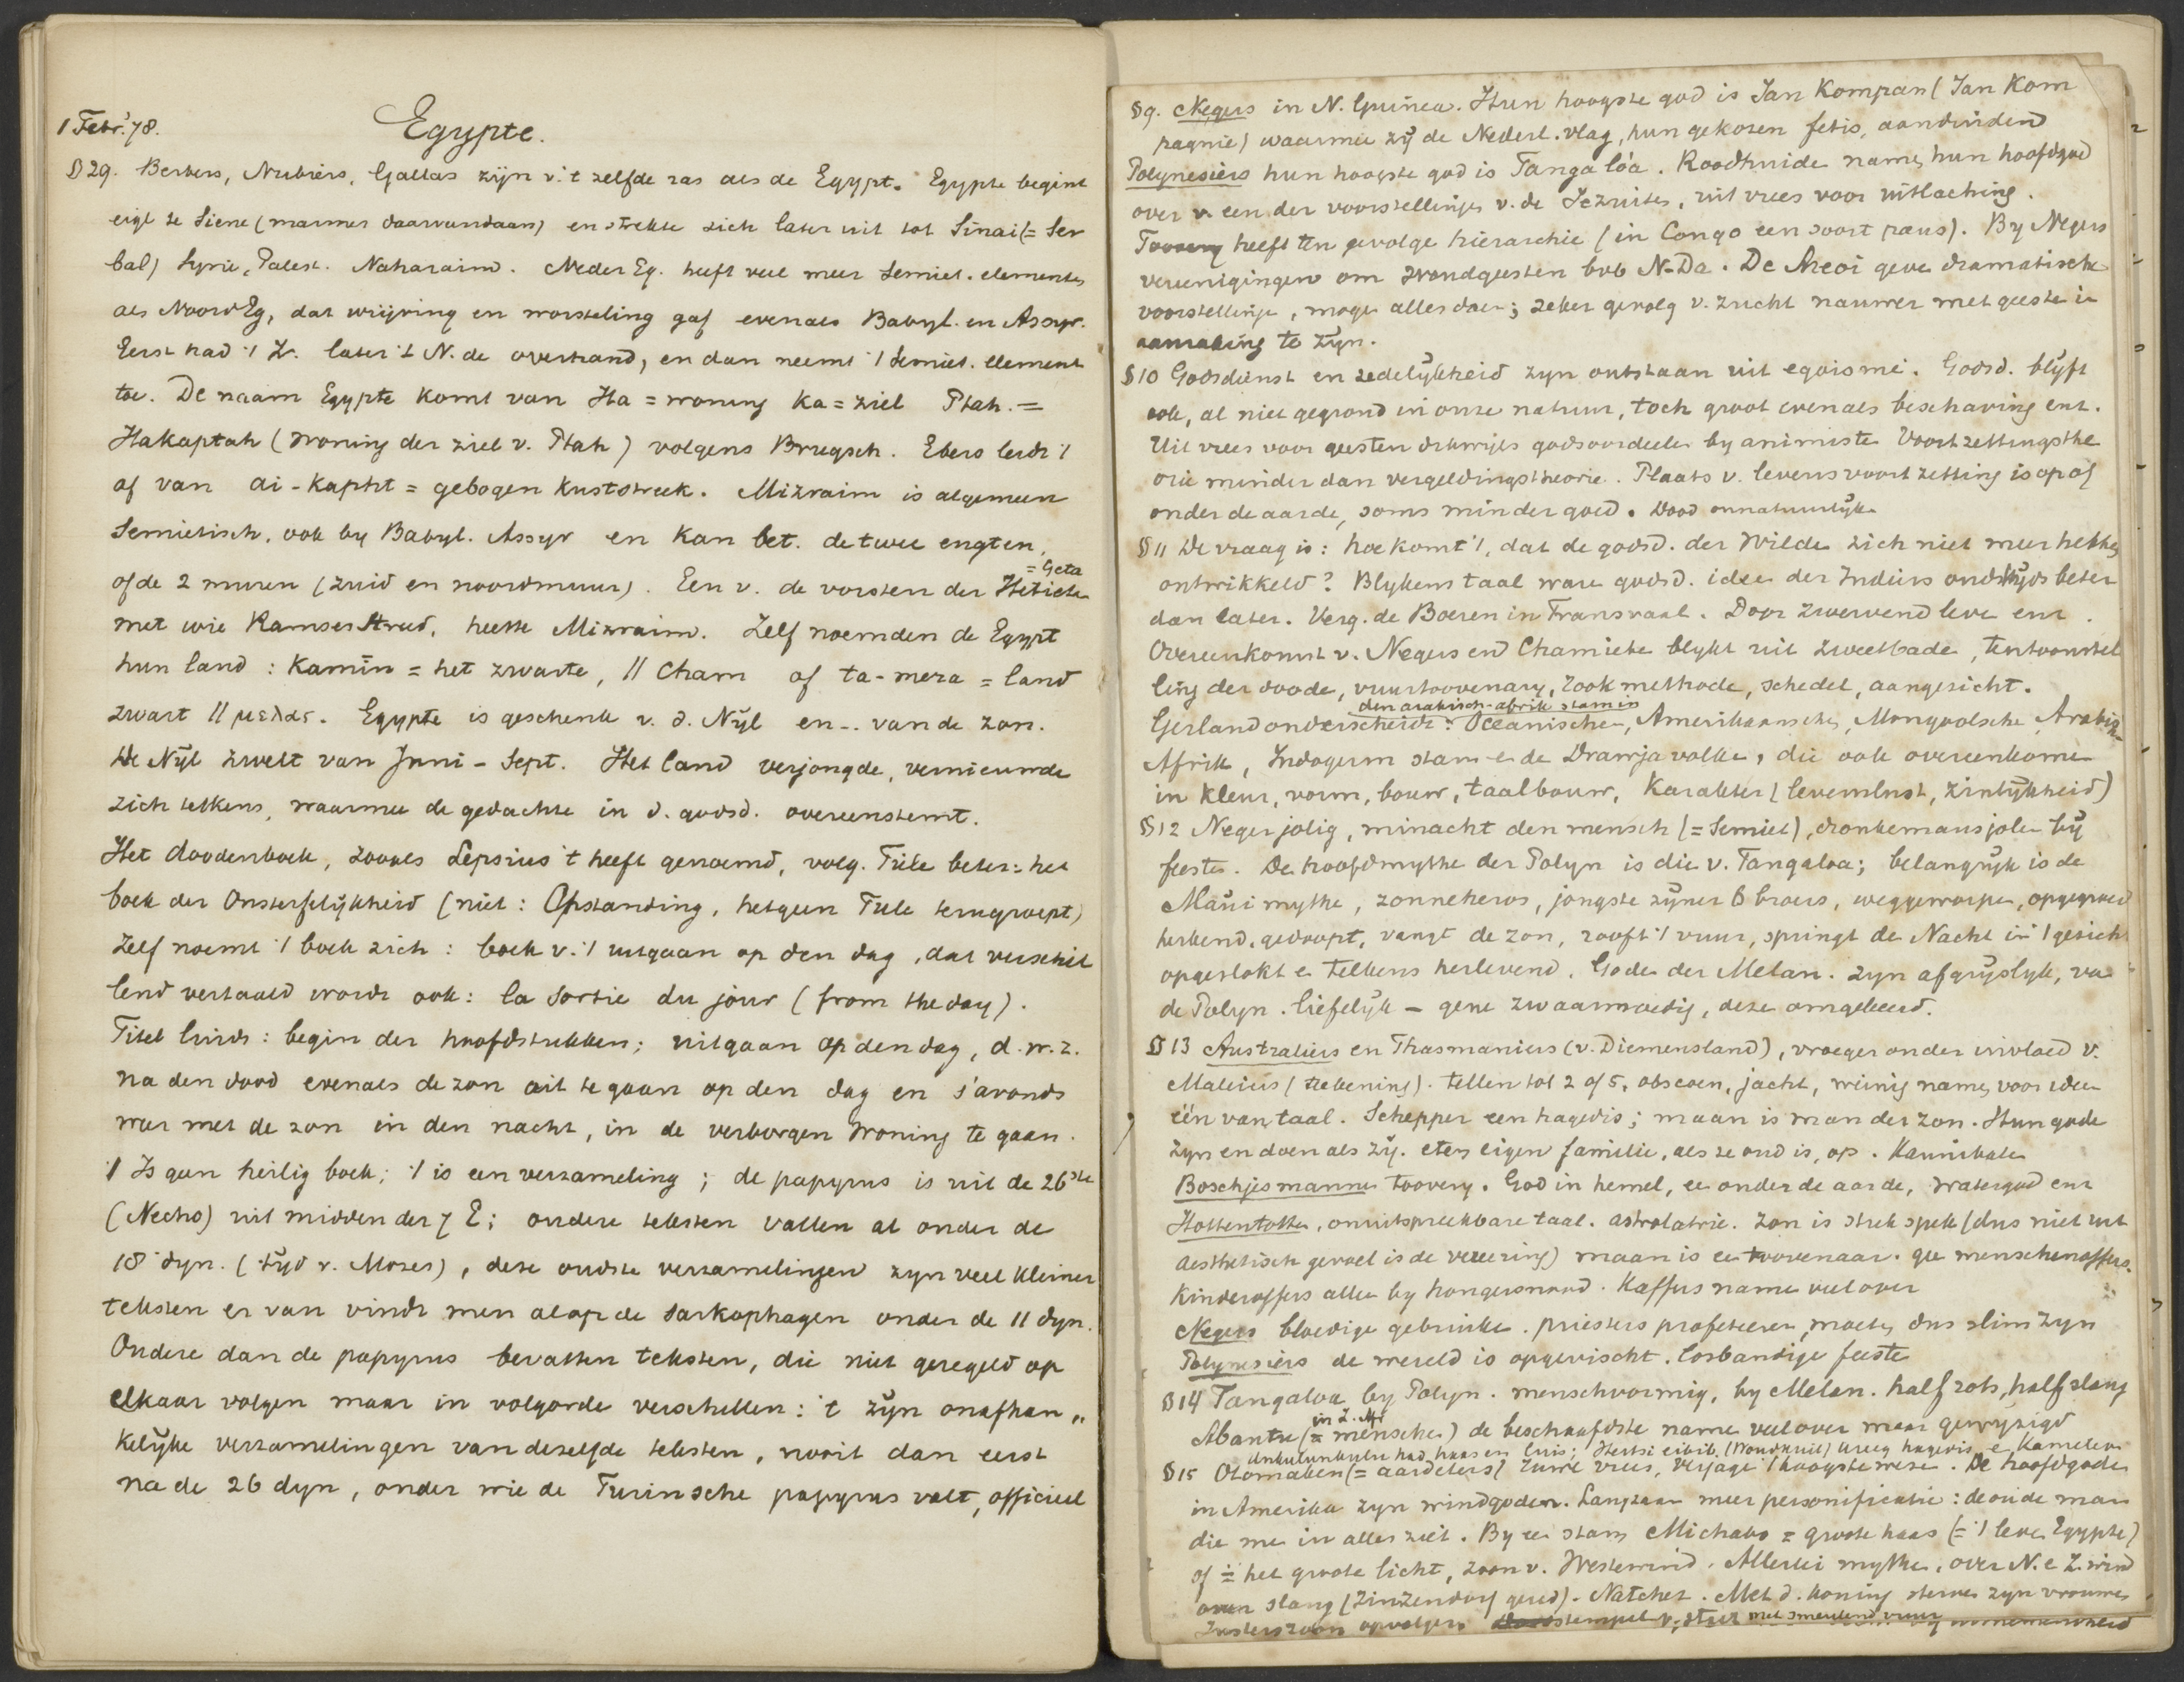 1 Febr. '78.
Egypte.
§ 29. Berbers, Nubiërs, Gallas zijn v. 't zelfde ras als de Egypt. Egypte begint
eigl te Siene (marmer daarvandaan) en strekte zich later uit tot Sinai (= Ser
bal) Syrië, Palest. Naharaim. Neder Eg. heeft veel meer Semiet. elementen
als Noord Eg, dat wrijving en worsteling gaf evenals Babyl. en Assyr.
Eerst had 't Z. later 't N. de overhand, en dan neemt 't Semiet. element
toe. De naam Egypte komt van Ha = woning Ka = ziel Ptah. =
Hakaptah (woning der ziel v. Ptah) volgens Brugsch. Ebers leidt 't
af van ai-kapht = gebogen kuststreek. Mizraim is algemeen
Semietisch, ook by Babyl. Assyr en kan bet. de twee engten,
of de 2 muren (zuid en noordmuur). Een v. de vorsten der Hetieten
= Geta
met wie Ramses streed, heette Mizraim. Zelf noemden de Egypt
hun land: Kamin = het zwarte, // Cham of ta-mera = land
zwart // μελας. Egypte is geschenk v. d. Nijl en -. van de zon.
De Nijl zwelt van Juni - Sept. Het land verjongde, vernieuwde
zich telkens, waarmee de gedachte in d. godsd. overeenstemt.
Het doodenboek, zooals Lepsius 't heeft genoemd, volg. Tiele beter: het
boek der Onsterfelijkheid (niet: Opstanding, hetgeen Tiele terugroept)
Zelf noemt 't boek zich: boek v. 't uitgaan op den dag, dat verschil
lend vertaald wordt ook: la Sortie du jour (from the day).
Titel luidt: begin der hoofdstukken; uitgaan op den dag, d.w.z.
na den dood evenals de zon uit te gaan op den dag en s'avonds
weer met de zon in den nacht, in de verborgen woning te gaan.
't Is geen heilig boek; 't is een verzameling; de papyrus is uit de 26ste
(Necho) uit midden der 7 E; andere teksten vallen al onder de
18e dyn. (tijd v. Mozes), deze oudste verzamelingen zyn veel kleiner
teksten er van vindt men al op de sarkophagen onder de 11 dyn.
Oudere dan de papyrus bevatten teksten, die niet geregeld op
elkaar volgen maar in volgorde verschillen: 't zijn onafhan„
kelijke verzamelingen van dezelfde teksten, nooit dan eerst
na de 26 dyn, onder wie de Turinsche papyrus valt, officieel
§ 9. Negers in N. Guinea. Hun hoogste god is Jan Kompan (Jan Kom
pagnie) waarmee zij de Nederl. vlag, hun gekozen fetis, aanduiden
Polynesiërs hun hoogste god is Tangalóa. Roodhuide namen hun hoofdgod
over v. een der voorstellingen v. de Jezuiten, uit vrees voor uitlaching.
Toovery heeft ten gevolge hiërarchie (in Congo een soort paus). By Negers
vereenigingen om woudgeesten bvb N-Da. De Areoi geven dramatische
voorstellingen, mogen alles doen; zeker gevolg v. zucht nauwer met geesten in
aanraking te zijn.
§ 10 Godsdienst en zedelijkheid zyn ontstaan uit egoisme. Godsd. blyft
ook, al niet gegrond in onze natuur, toch groot evenals beschaving enz.
Uit vrees voor geesten dikwijls godsoordeelen by animisten Voortzettingsthe
orie minder dan vergeldingstheorie. Plaats v. levensvoortzetting is op of
onder de aarde, soms minder goed. Dood onnatuurlijk
§ 11 De vraag is: hoe komt 't, dat de godsd. der Wilden zich niet meer hebben
ontwikkeld? Blykens taal ware godsd. ideeen der Indiërs oudstijds beter
dan later. Verg. de Boeren in Transvaal. Door zwervend leven enz.
Overeenkomst v. Negers en Chamieten blykt uit zweetbaden, tentoonstel
ling der dooden, vuurtoovenary, kookmethode, schedel, aangezicht.
den arabisch-afrik stam in
Gerland onderscheidt: Oceanische, Amerikaansche, Mongoolsche, Arabisch
Afrik, Indogerm stam en de Drawja volken, die ook overeenkomen
in kleur, vorm, bouw, taalbouw, karakter (levenslust, zinlijkheid)
§ 12 Neger jolig, minacht den mensch (= Semiet), dronkemansjolen bij
feesten. De hoofdmythe der Polyn is die v. Tangaloa; belangrijk is de
Mâui mythe, zonneheros, jongste zijner 6 broers, weggeworpen, opgegroeid
herkend, gedoopt, vangt de zon, rooft 't vuur, springt de Nacht in 't gezicht
opgeslokt en telkens herlevend. Goden der Melan. zyn afgrijslyk, van
de Polyn. liefelijk - gene zwaarmoedig, deze omgekeerd.
§ 13 Australiërs en Thasmaniërs (v. Diemensland), vroeger onder invloed v.
Maleiërs (teekening). tellen tot 2 of 5, obscoen, jacht, weinig namen voor ideen
één van taal. Schepper een hagedis; maan is man der zon. Hun goden
zyn en doen als zij. eten eigen familie, als ze oud is, op. Kannibalen
Boschjesmannen toovery. God in hemel, een onder de aarde, watergod enz
Hottentotten, onuitspreekbare taal. astrolatrie. zon is stuk spek (dus niet uit
aesthetisch gevoel is de vereering) maan is een toovenaar. geen menschenoffers.
Kinderoffers alleen by hongersnood. Kaffers namen veel over
Negers bloedige gebruiken. priesters profeteeren, moeten dus slim zyn
Polynesiërs de wereld is opgevischt. losbandige feesten
§ 14 Tangaloa by Polyn. menschvormig, by Melan. half rots, half slang
in Z. Afr
Abantu (= menschen) de beschaafdste namen veel over maar gewijzigd
Unkulunkulu had haas en luis; Heitsi eibib. (Woudkruil) kreeg hagedis en Kameleon
§ 15 Otomaken (= aardeters) vrees, 't hoogste wezen. De hoofdgoden
in Amerika zyn windgoden. Langzaam meer personificatie: de oude man
die men in alles ziet. By een stam Michabo = groote haas (= 't leven Egypte)
of = het groote licht, zoon v. Westewind. Allerlei mythen, over N. en Z. wind
over slang (Zinzendorf gered). Natchez. Met d. koning sterven zyn vrouwen
Zusterszoon opvolger. met smeulend vuur